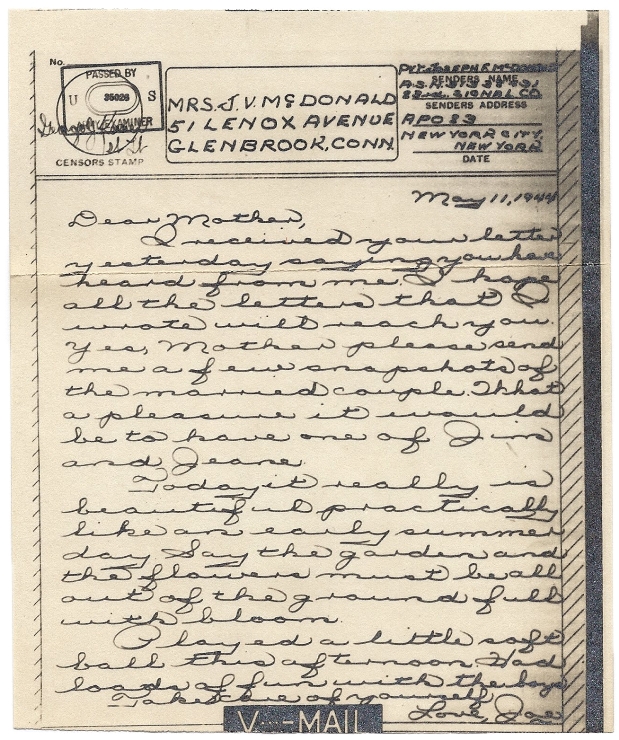 No.
PASSED BY
U 35026 S
ARMY EXAMINER
CENSORS STAMP
MRS. J. V. McDONALD
51 LENOX AVENUE
GLENBROOK, CONN.
PVT. JOSEPH F. McDONALD
SENDERS NAME
83rd. SIGNAL CO.
SENDERS ADDRESS
APO 83
NEW YORK CITY,
NEW YORK
DATE
May 11, 1944
Dear Mother,
I received your letter
yesterday saying you have
heard from me. I hope
all the letters that I
wrote will reach you.
Yes, Mother please send
me a few snapshots of
the married couple. What
a pleasure it would
be to have one of Jim
and Jeane.
Today it really is
beautiful practically
like an early summer
day. Say the garden and
the flowers must be all
out of the ground full
with bloom.
Played a little soft
ball this afternoon. Had
loads of fun with the boys
Take care of yourself
Love, Joe
V···-MAIL